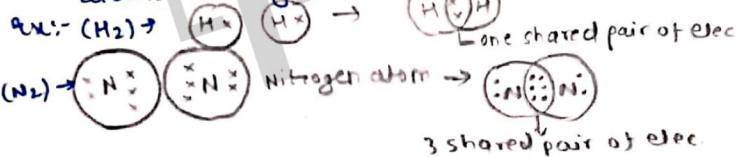 ex:- (H2) → H× H× → H H
one shared pair of elec
(N2) → N N Nitrogen atom → :N N:
3 shared pair of elec.